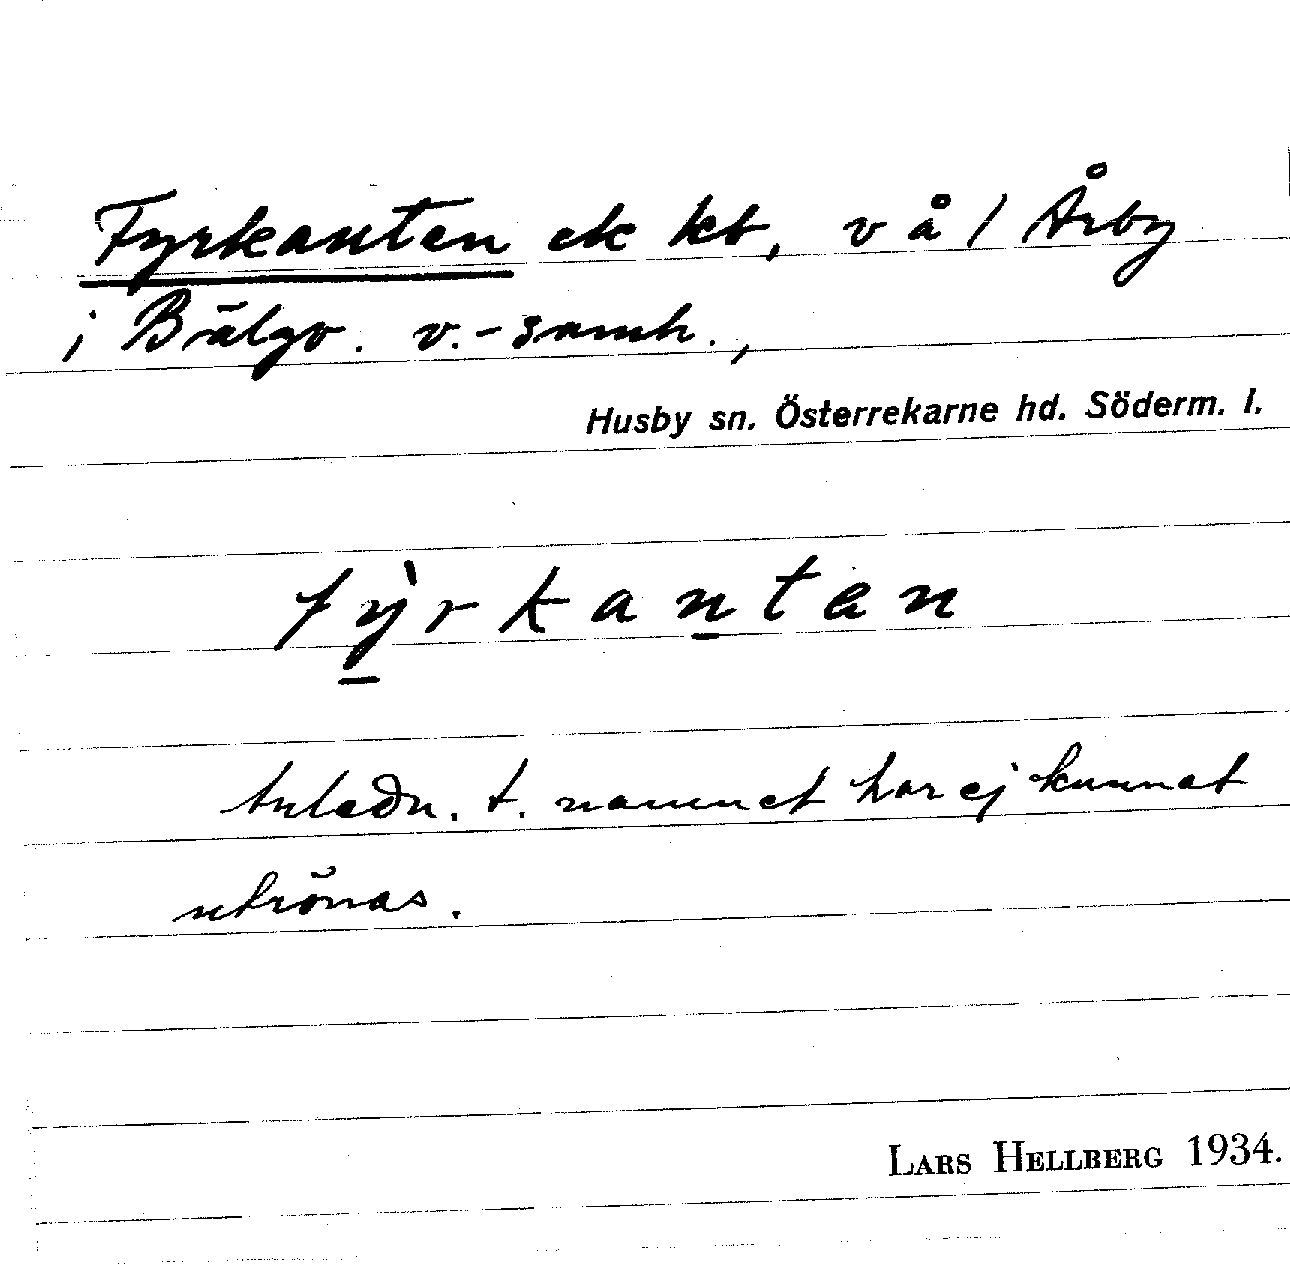 Fyrkanten ek kt, v å / Årby
i Bälgv. v.-samh.,
Husby sn. Österrekarne hd. Söderm. l.
fỳ̠rkan̠ten
Anledn. t. namnet har ej kunnat
utrönas.
LARS HELLBERG 1934.